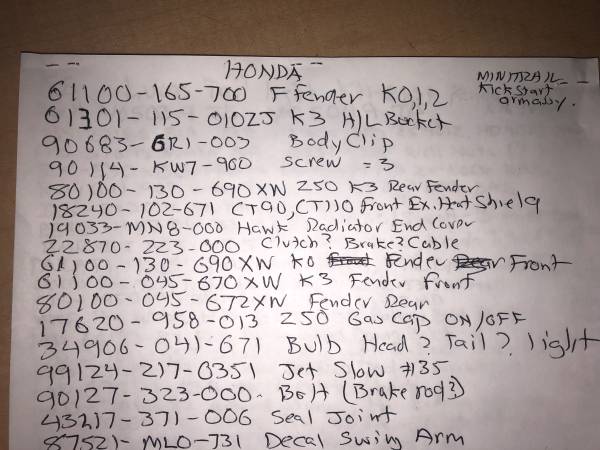 HONDA
MINITRAIL
Kick Start
arm assy.
61100-165-700 F Fender K0,1,2
61301-115-010ZJ K3 H/L Bucket
90683-GR1-003 Body Clip
90114-KW7-900 Screw =3
80100-130-690XW Z50 K3 Rear Fender
18240-102-671 CT90, CT110 Front Ex. Heat Shield
19033-MN8-000 Hawk Radiator End Cover
22870-223-000 Clutch? Brake? Cable
61100-130-690XW K0 Fender Front
61100-045-670XW K3 Fender Front
80100-045-672XW Fender Rear
17620-958-013 Z50 Gas Cap ON/OFF
34906-041-671 Bulb Head? Tail? light
99124-217-0351 Jet Slow #35
90127-323-000- Bolt (Brake rod?)
43217-371-006 Seal Joint
87521-ML0-731 Decal Swing Arm